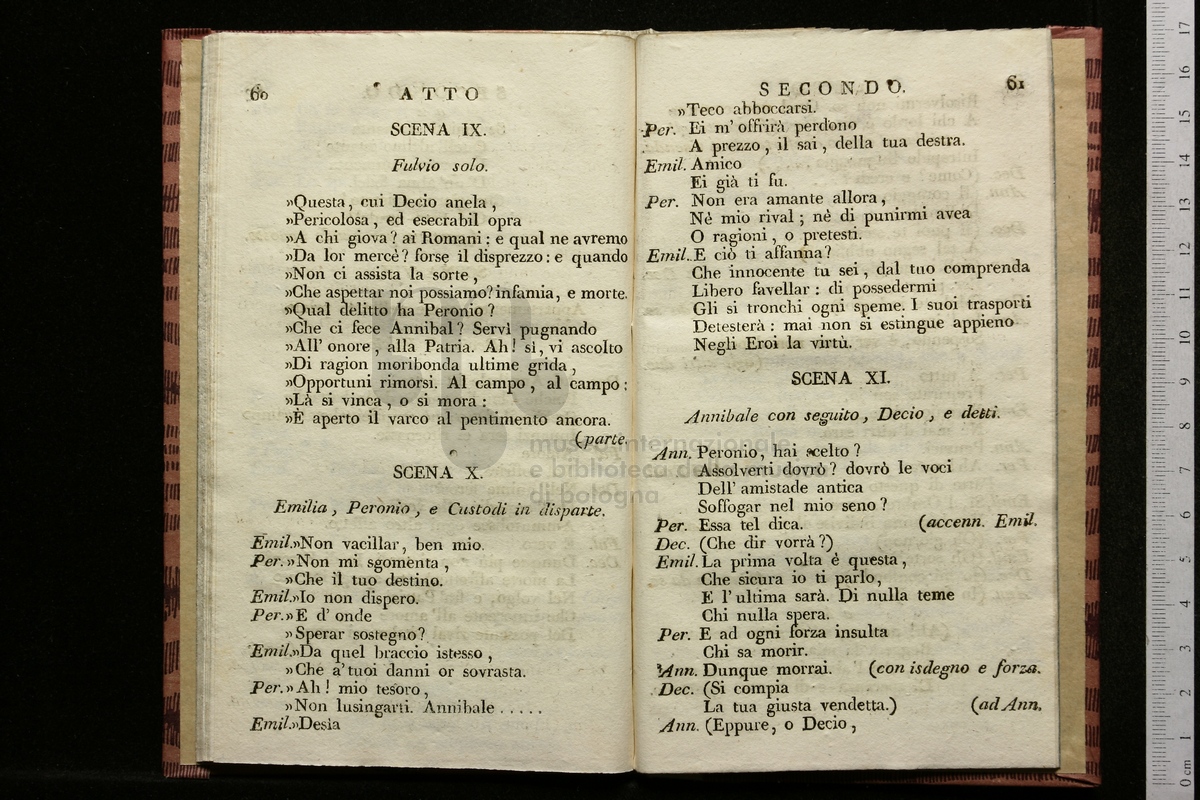 60 ATTO
SCENA IX.
Fulvio solo.
»Questa, cui Decio anela,
»Pericolosa, ed esecrabil opra
»A chi giova? ai Romani: e qual ne avremo
»Da lor mercè? forse il disprezzo: e quando
»Non ci assista la sorte,
»Che aspettar noi possiamo? infamia, e morte.
»Qual delitto ha Peronio?
»Che ci fece Annibal? Servì pugnando
»All' onore, alla Patria. Ah! sì, vi ascolto
»Di ragion moribonda ultime grida,
»Opportuni rimorsi. Al campo, al campo:
»Là si vinca, o si mora:
»È aperto il varco al pentimento ancora.
(parte.
SCENA X.
Emilia, Peronio, e Custodi in disparte.
Emil.»Non vacillar, ben mio.
Per.»Non mi sgomenta,
»Che il tuo destino.
Emil.»Io non dispero.
Per.»E d' onde
»Sperar sostegno?
Emil.»Da quel braccio istesso,
»Che a' tuoi danni or sovrasta.
Per.»Ah! mio tesoro,
»Non lusingarti. Annibale . . . . .
Emil.»Desia
SECONDO. 61
»Teco abboccarsi.
Per. Ei m' offrirà perdono
A prezzo, il sai, della tua destra.
Emil. Amico
Ei già ti fu.
Per. Non era amante allora,
Nè mio rival; nè di punirmi avea
O ragioni, o pretesti.
Emil. E ciò ti affanna?
Che innocente tu sei, dal tuo comprenda
Libero favellar: di possedermi
Gli si tronchi ogni speme. I suoi trasporti
Detesterà: mai non si estingue appieno
Negli Eroi la virtù.
SCENA XI.
Annibale con seguito, Decio, e detti.
Ann. Peronio, hai scelto?
Assolverti dovrò? dovrò le voci
Dell' amistade antica
Soffogar nel mio seno?
Per. Essa tel dica. (accenn. Emil.
Dec. (Che dir vorrà?)
Emil. La prima volta è questa,
Che sicura io ti parlo,
E l' ultima sarà. Di nulla teme
Chi nulla spera.
Per. E ad ogni forza insulta
Chi sa morir.
Ann. Dunque morrai. (con isdegno e forza.
Dec. (Si compia
La tua giusta vendetta.) (ad Ann.
Ann. (Eppure, o Decio,
museo internazionale
e biblioteca della musica
di bologna
0 cm 1 2 3 4 5 6 7 8 9 10 11 12 13 14 15 16 17